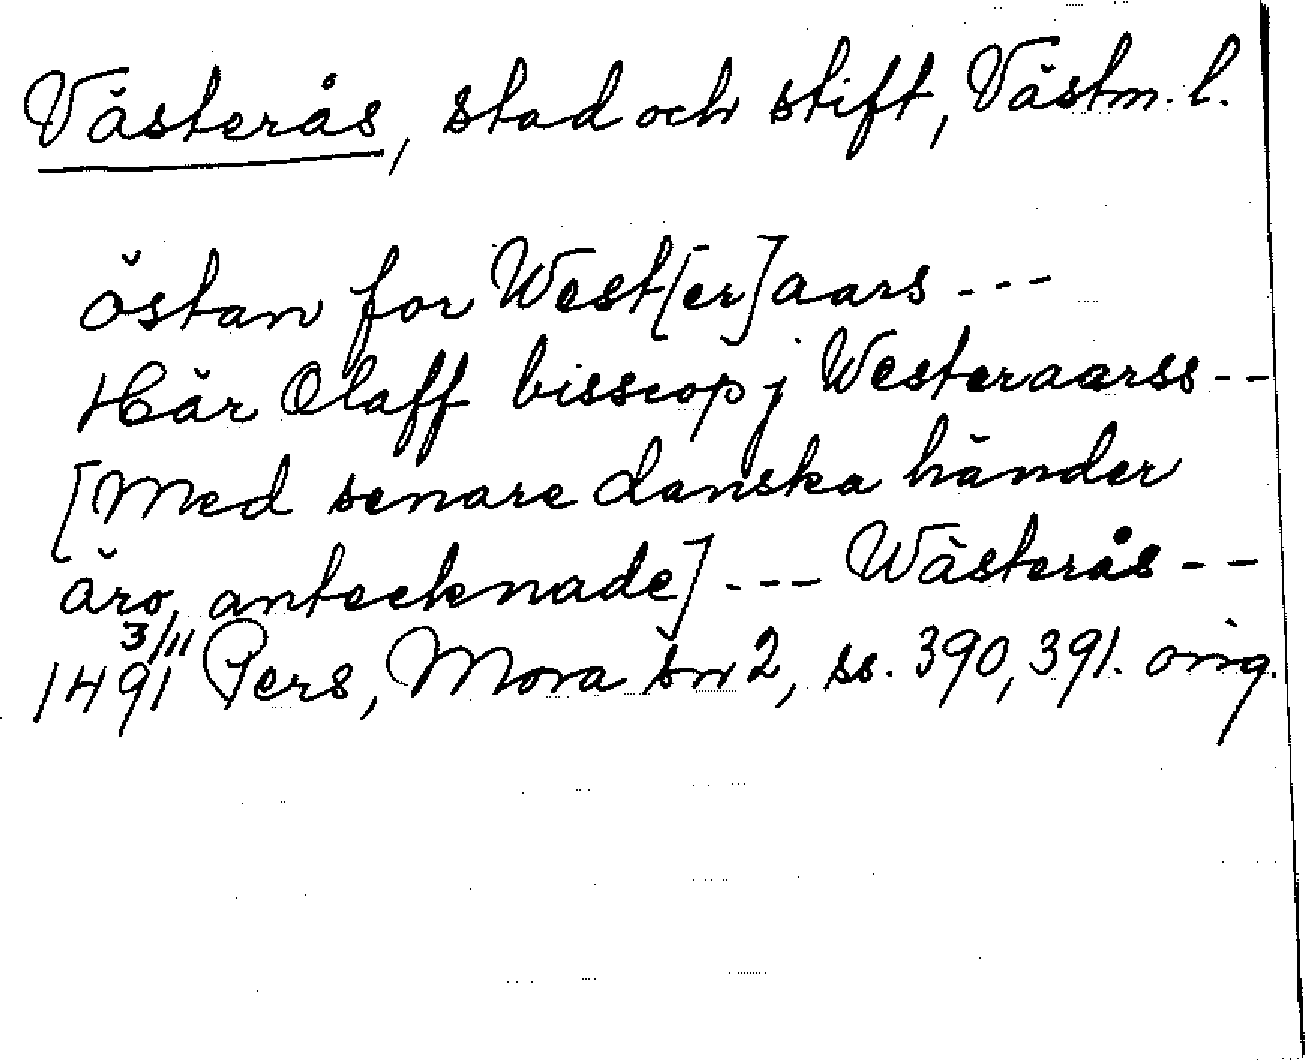 Västerås, stad och stift, Västm. l.
östan for West[er]aars ---
Här Olaff bisscop j Westeraarss --
[Med senare danska händer
äro antecknade] --- Wästerås --
1491 3/11 Pers, Mora sn 2, ss. 390, 391. orig.